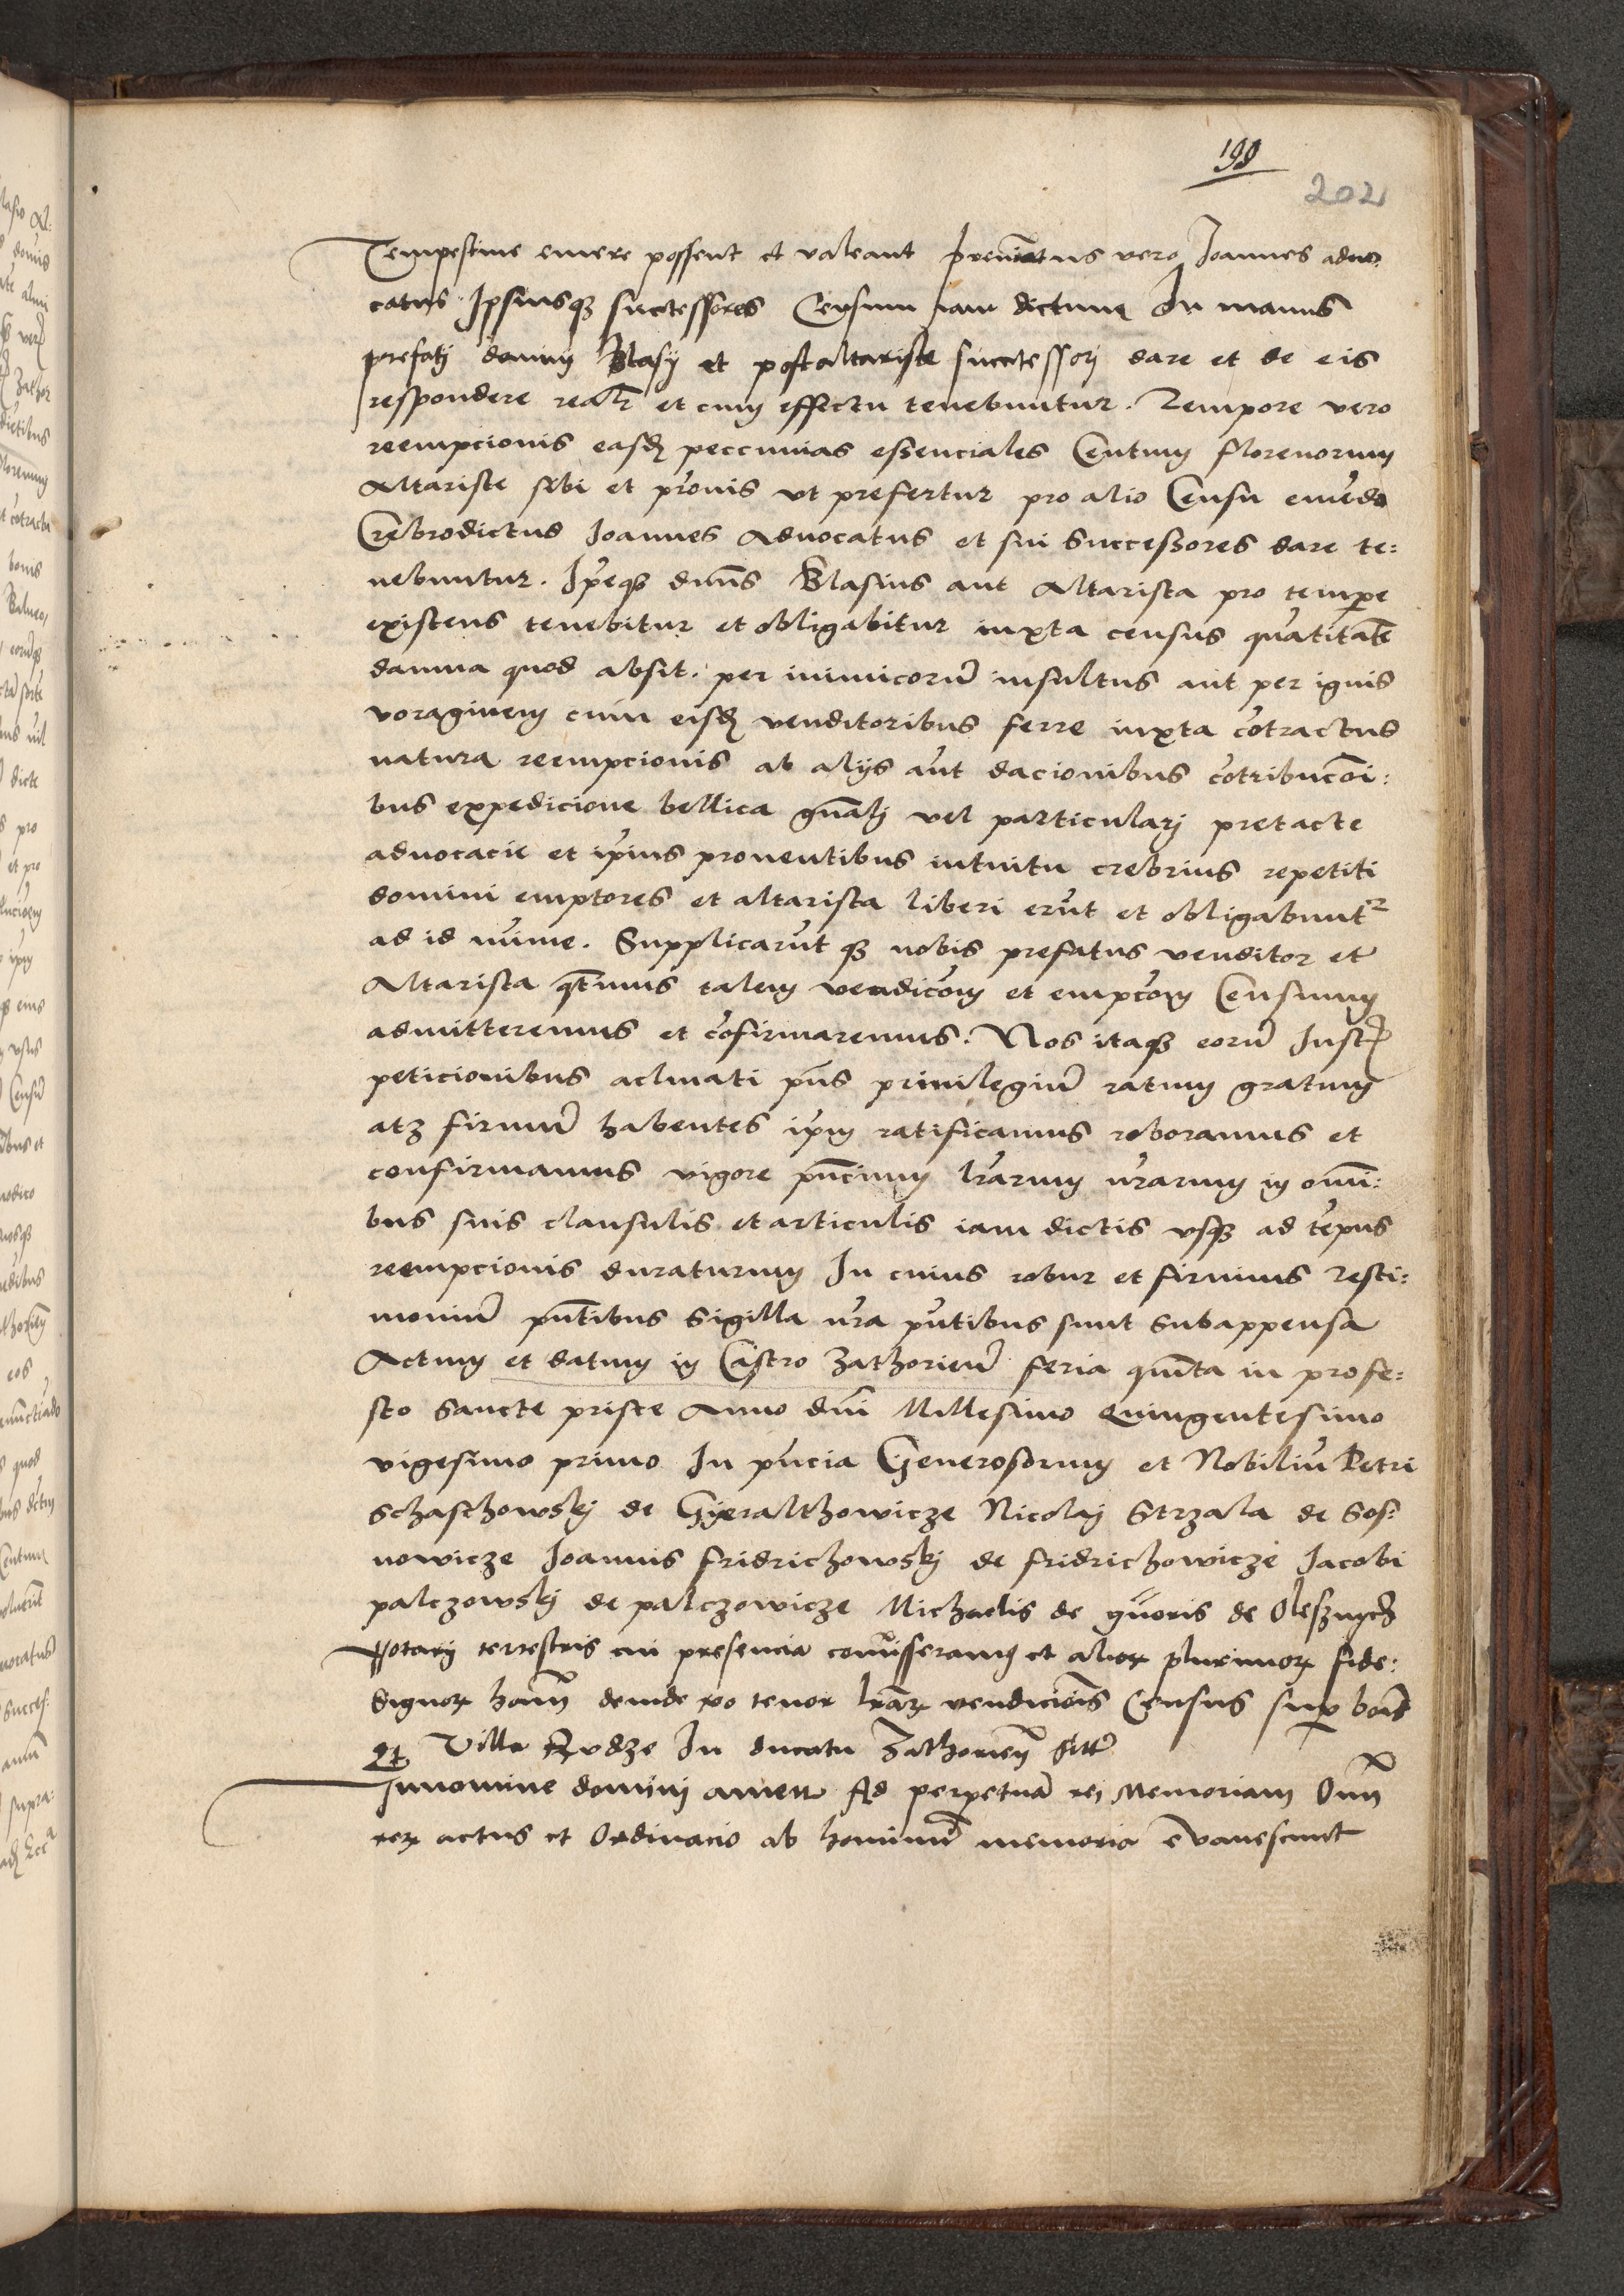 199
202
Tempestiue emere possent et valeant prenominatus vero Joannes aduo:
catus Ipsiusq3 successores Censum iam dictum In manus
prefatj dominj Blasij et post altariste successorj dare et de eis
respondere realr et cum effectu tenebuntur. Tempore vero
reempcionis easd peccunias essenciales Centum florenorum
Altariste sibi et prouis vt prefertur pro alio Censu emendo
Crebrodictus Joannes Aduocatus et sui Successores dare te:
nebuntur. Ipeq3 dnus Blasius aut Altarista pro tempore
existens tenebitur et obligabitur iuxta census quatitate
damna quod absit. per inimicoru insultus aut per ignis
voraginem cum eisd venditoribus ferre iuxta cotractus
natura reempcionis ab alijs aut dacionibus cotribucoi:
bus expedicione bellica gnalj vel particularj pretacte
aduocacie et ipius prouentibus intuitu crebrius repetiti
domini emptores et altarista liberi erut et obligabunt
ad id nime. Supplicarut q3 nobis prefatus venditor et
Altarista qtenus talem vendicoem et empcoem Censuum
admitteremus et cofirmaremus. Nos itaq3 eoru Just
peticionibus aclinati pns priuilegiu ratum gratum
atz firmu habentes ipm ratificamus roboramus et
confirmamus vigore pncium lrarum nrarum in omi:
bus suis clausulis et articulis iam dictis vsq3 ad tepus
reempcionis duraturum In cuius robur et firmius Testi:
moniu pntibus Sigilla nra pntibus sunt Subappensa
Actum et datum in Castro Zathorien feria quita in profe:
sto Sancte prisce Anno dni Millesimo Quingentesimo
vigesimo primo In pncia Generosorum et Nobiliu Petri
Schaschowskj de Gyeralthowicze Nicolaj Strzala de Sos:
nowicze Joannis fridrichowskj de fridrichowicze Jacobi
palczowskj de palczowicze Michaelis de gnoris de
Notarij terrestris cui presencia comisseramus et alior plurimor fide:
Dignor homi deinde vo tenor lrar vendicionis Census sup bonis
Et Villa Rudze In ducatu Zathorien
Innomine dominj amen Ad perpetua rej Memoriam Omn
rer actus et Ordinacio ab hominu memoria evanescunt